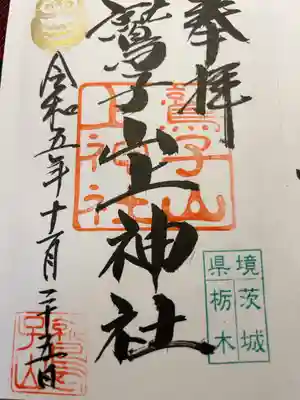 奉拝
鷲子山上神社
令和五年十一月二十五日
鷲子山
上神社
境茨城
県栃木